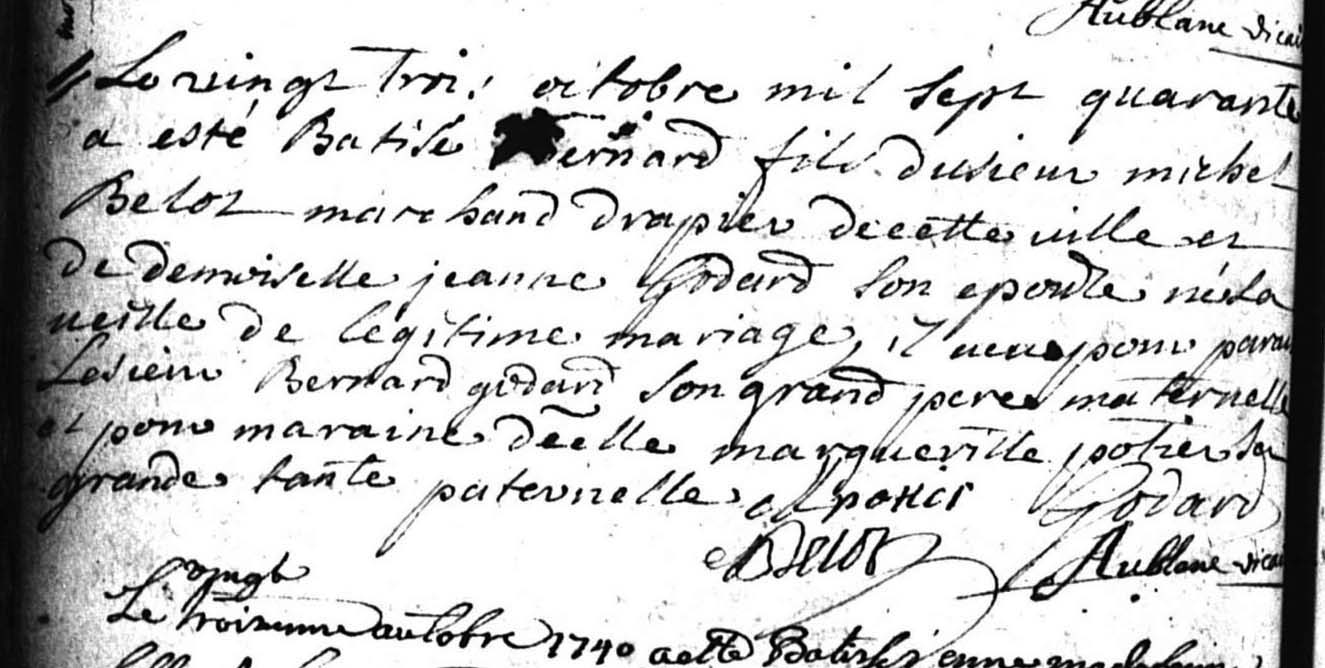 Aublanc vicai
Le vingt troi. octobre mil sept quarante
a esté Batisé Bernard fils dusieur michel
Belot marchand drapier decette ville et
de demoiselle jeanne Godard son epouse né la
veille de légitime mariage, il a eu pour parai
Lesieur Bernard godard son grand pere maternelle
et pour maraine delle marguerille potier sa
grande tante paternelle potier Godard
Belot Aublanc vicai
vingt
Le troisieme auctobre 1740 a esté Batisé